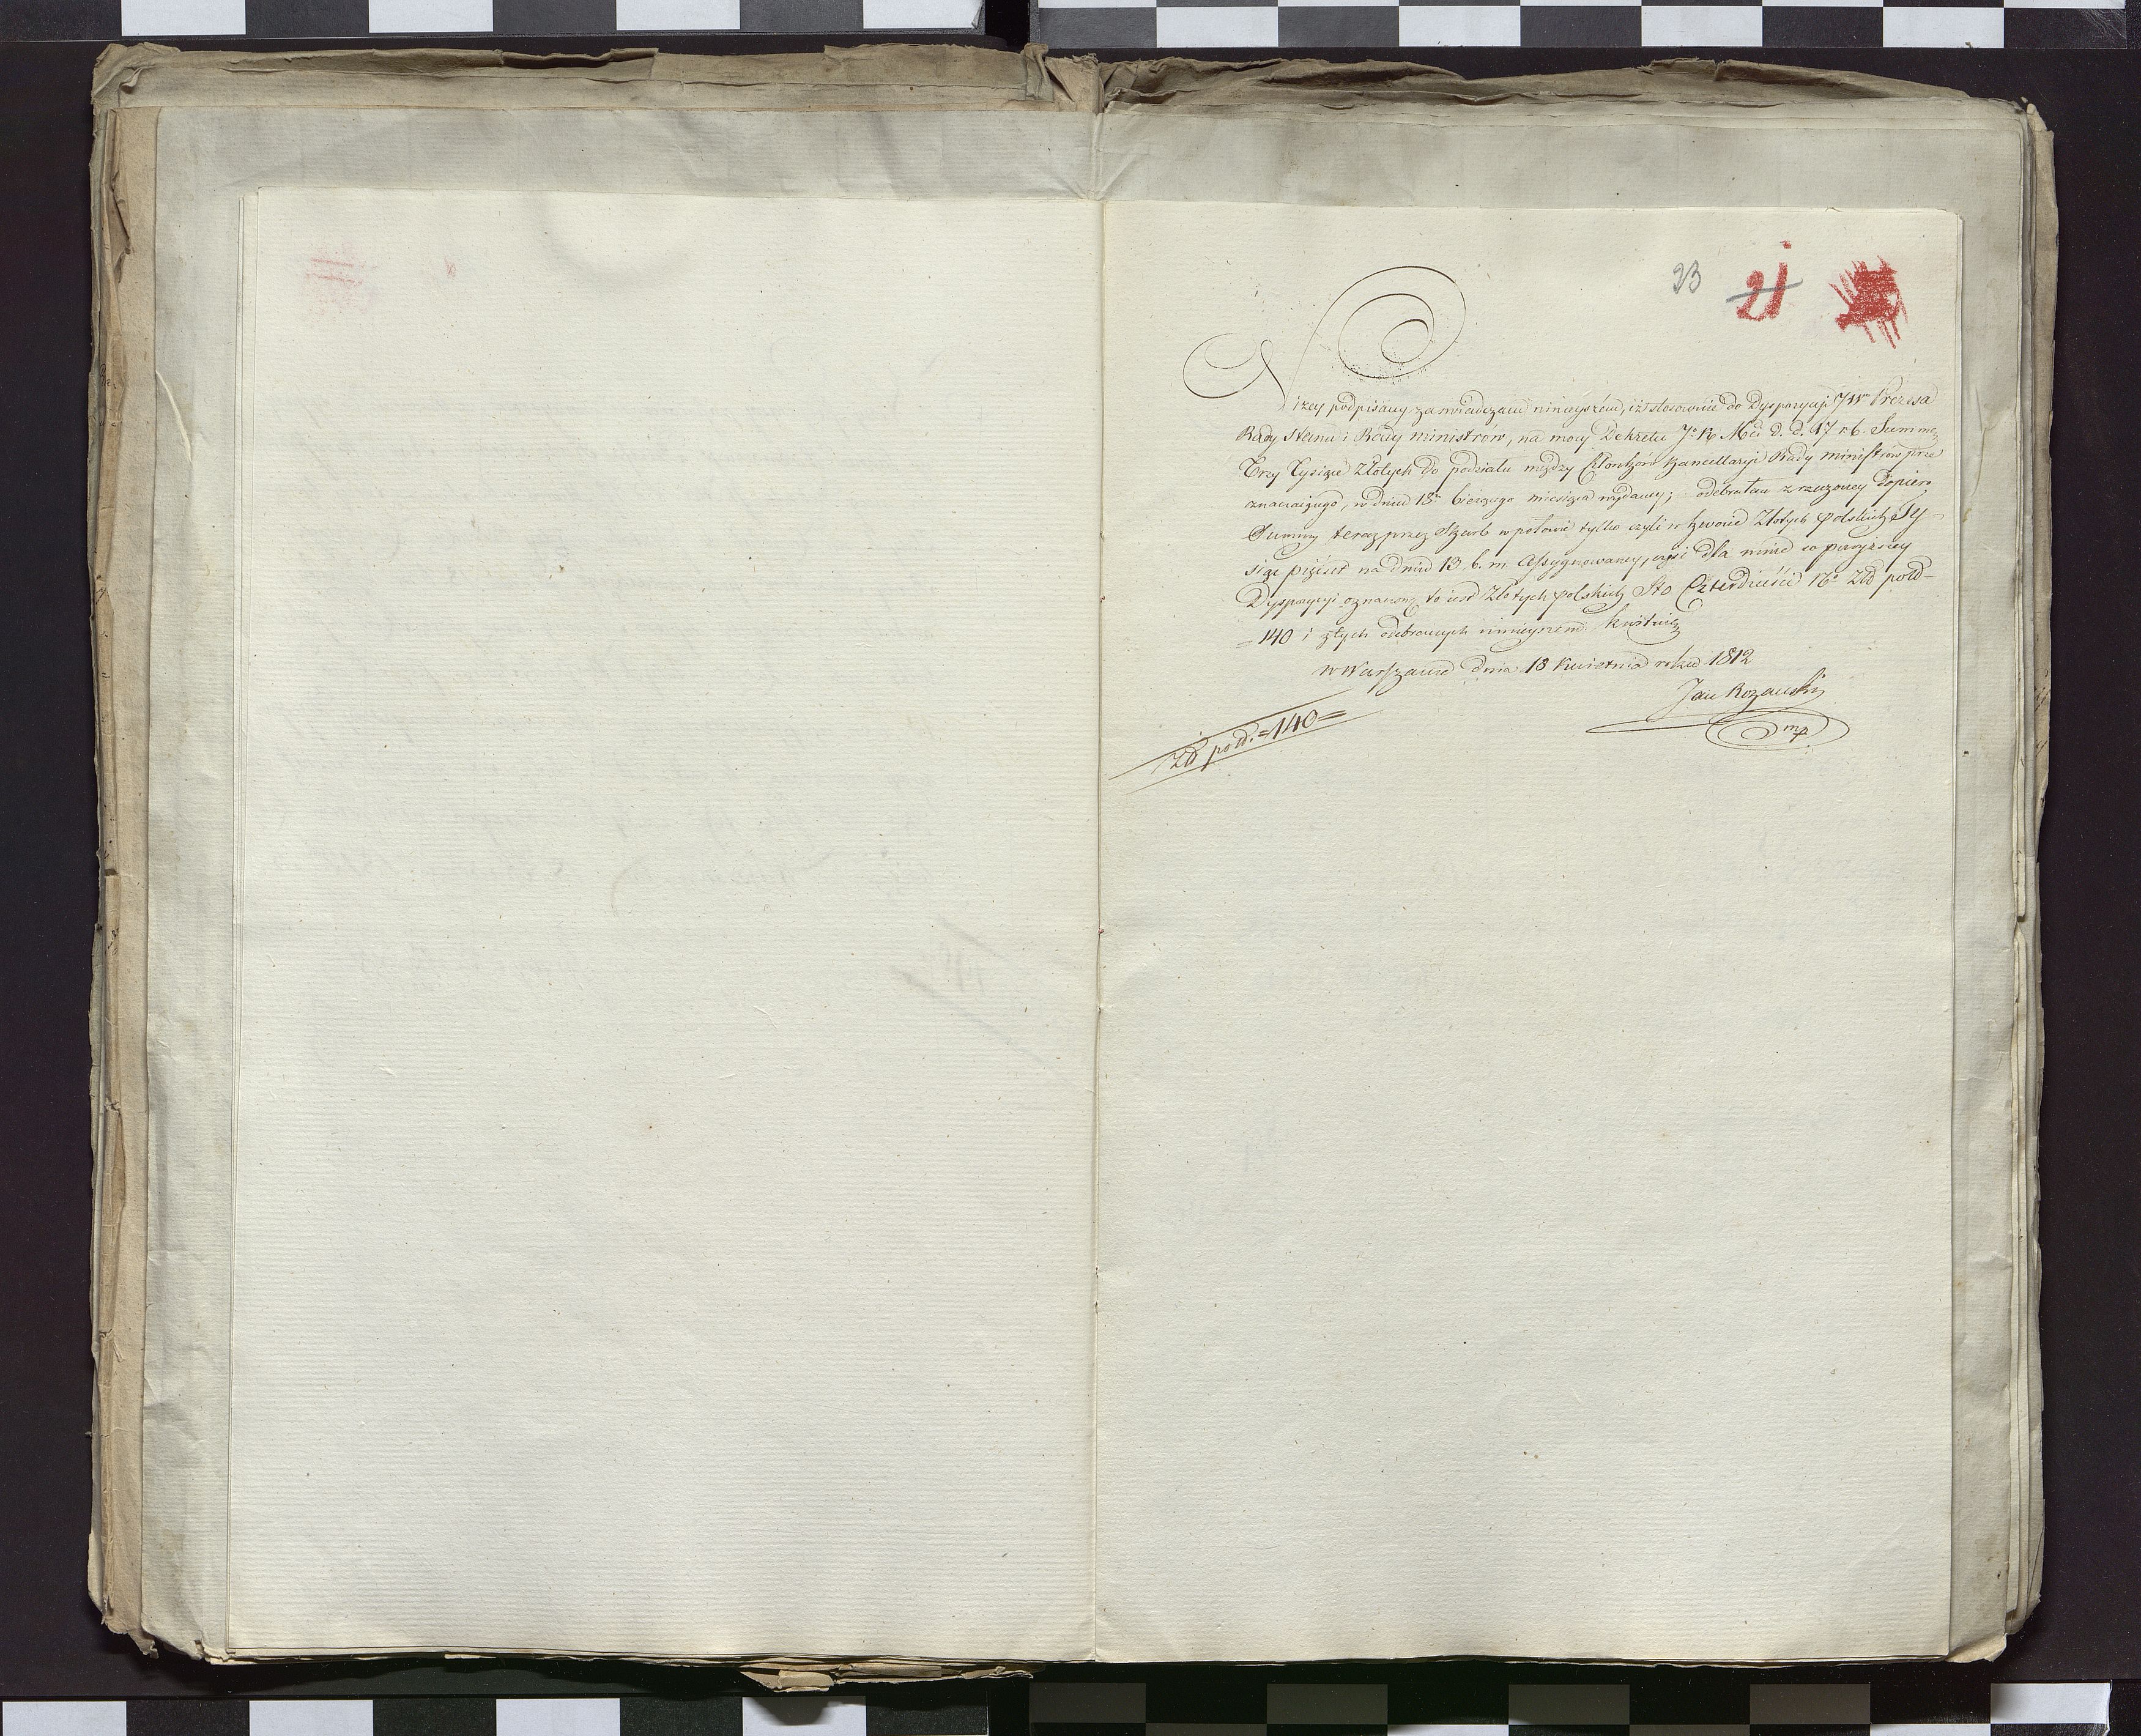 23 21
Niżey podpisany zaswiadczam ninieyszém, iż stosownie do Dyspozycyi JW Prezesa
Rady Stanu i Rady Ministrow, na mocy Dekretu J. K. Mci d. d. 17 r. b. Summę
Trzy Tysiące Złotych do podziału między Członków Kancellaryi Rady Ministrów prze
znaczaiącego, w dniu 18 bieżącego miesiąca wydaney; odebrałem z rzeczoney dopiero
Summy teraz przez Skarb w połowie tylko czyli w kwocie Złotych polskich Ty
siąc pięćset na dniu 13 b. m. assygnowaney, część dla mnie w powyższey
Dyspozycyi oznaczoną to iest Złotych polskich Sto Czterdzieści No Złł pold
= 140 i z tych odebranych ninieyszem kwituię
w Warszawie dnia 18 Kwietnia roku 1812
Jan Rozanski
mp
Złł pold. = 140 =